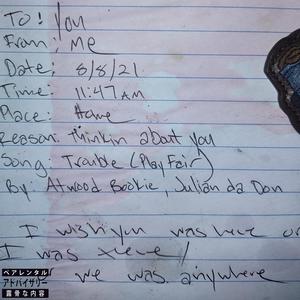 To: You
From: Me
Date: 8/8/21
Time: 11:47 AM
Place: Home
Reason: Thinkin about you
Song: Trouble (Play Fair)
By: Atwood Bookie, Julian da Don
I wish you was here or
I was there /
we was anywhere
ペアレンタル
アドバイザリー
露骨な内容